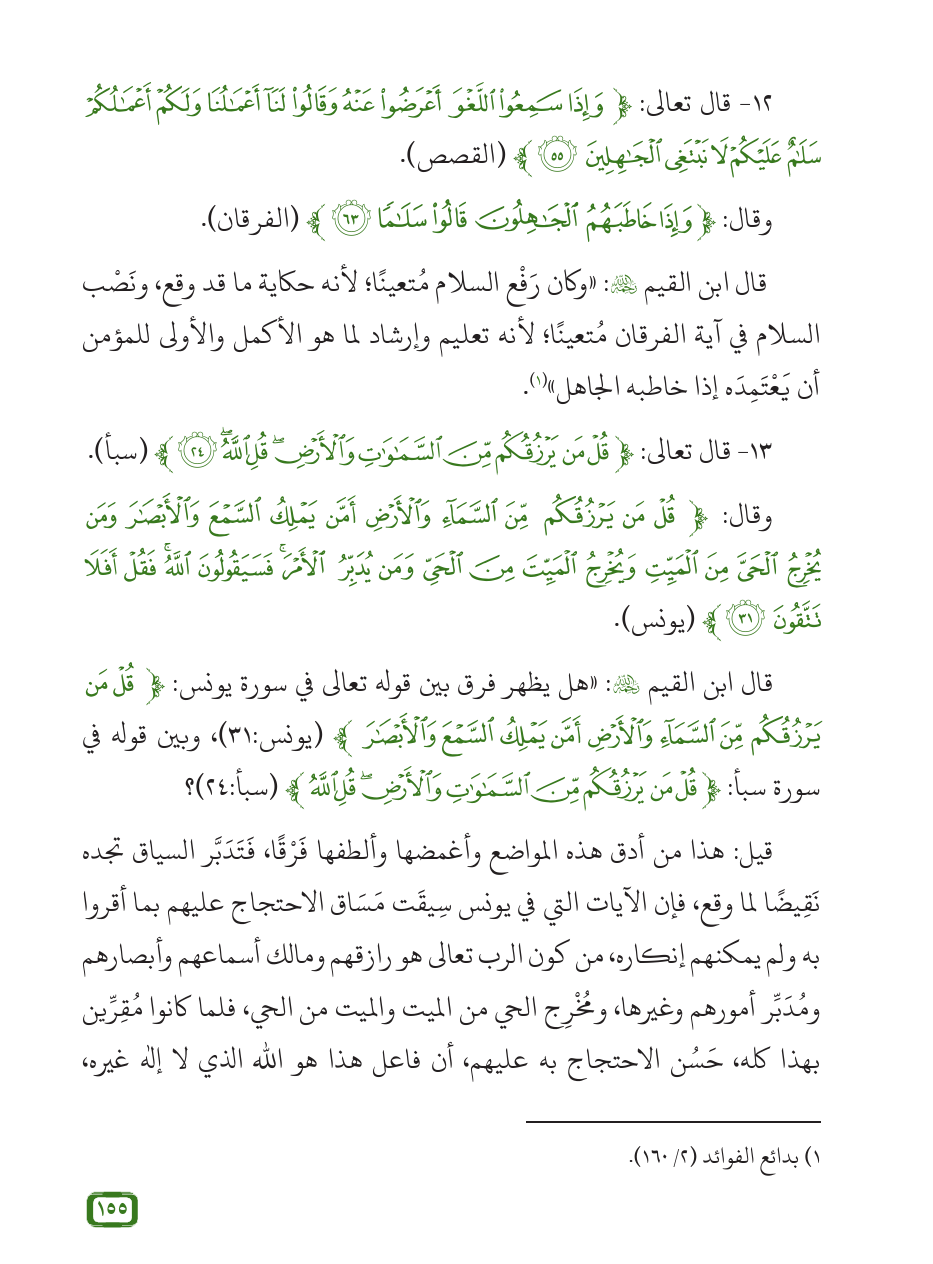 ١٢- قال تعالى: ﴿ وَإِذَا سَمِعُوا۟ ٱللَّغْوَ أَعْرَضُوا۟ عَنْهُ وَقَالُوا۟ لَنَآ أَعْمَـٰلُنَا وَلَكُمْ أَعْمَـٰلُكُمْ
سَلَـٰمٌ عَلَيْكُمْ لَا نَبْتَغِى ٱلْجَـٰهِلِينَ ٥٥ ﴾ (القصص).
وقال: ﴿ وَإِذَا خَاطَبَهُمُ ٱلْجَـٰهِلُونَ قَالُوا۟ سَلَـٰمًا ٦٣ ﴾ (الفرقان).
قال ابن القيم رحمه الله: «وكان رَفْع السلام مُتعينًا؛ لأنه حكاية ما قد وقع، ونَصْب
السلام في آية الفرقان مُتعينًا؛ لأنه تعليم وإرشاد لما هو الأكمل والأولى للمؤمن
أن يَعْتَمِدَه إذا خاطبه الجاهل»(١).
١٣- قال تعالى: ﴿ قُلْ مَن يَرْزُقُكُم مِّنَ ٱلسَّمَـٰوَٰتِ وَٱلْأَرْضِ ۖ قُلِ ٱللَّهُ ۖ ٢٤ ﴾ (سبأ).
وقال: ﴿ قُلْ مَن يَرْزُقُكُم مِّنَ ٱلسَّمَآءِ وَٱلْأَرْضِ أَمَّن يَمْلِكُ ٱلسَّمْعَ وَٱلْأَبْصَـٰرَ وَمَن
يُخْرِجُ ٱلْحَىَّ مِنَ ٱلْمَيِّتِ وَيُخْرِجُ ٱلْمَيِّتَ مِنَ ٱلْحَىِّ وَمَن يُدَبِّرُ ٱلْأَمْرَ ۚ فَسَيَقُولُونَ ٱللَّهُ ۚ فَقُلْ أَفَلَا
تَتَّقُونَ ٣١ ﴾ (يونس).
قال ابن القيم رحمه الله: «هل يظهر فرق بين قوله تعالى في سورة يونس: ﴿ قُلْ مَن
يَرْزُقُكُم مِّنَ ٱلسَّمَآءِ وَٱلْأَرْضِ أَمَّن يَمْلِكُ ٱلسَّمْعَ وَٱلْأَبْصَـٰرَ ﴾ (يونس:٣١)، وبين قوله في
سورة سبأ: ﴿ قُلْ مَن يَرْزُقُكُم مِّنَ ٱلسَّمَـٰوَٰتِ وَٱلْأَرْضِ ۖ قُلِ ٱللَّهُ ﴾ (سبأ:٢٤)؟
قيل: هذا من أدق هذه المواضع وأغمضها وألطفها فَرْقًا، فَتَدَبَّر السياق تجده
نَقِيضًا لما وقع، فإن الآيات التي في يونس سِيقَت مَسَاق الاحتجاج عليهم بما أقروا
به ولم يمكنهم إنكاره، من كون الرب تعالى هو رازقهم ومالك أسماعهم وأبصارهم
ومُدَبِّر أمورهم وغيرها، ومُخْرِج الحي من الميت والميت من الحي، فلما كانوا مُقِرِّين
بهذا كله، حَسُن الاحتجاج به عليهم، أن فاعل هذا هو الله الذي لا إلٰه غيره،
١) بدائع الفوائد (٢/ ١٦٠).
١٥٥